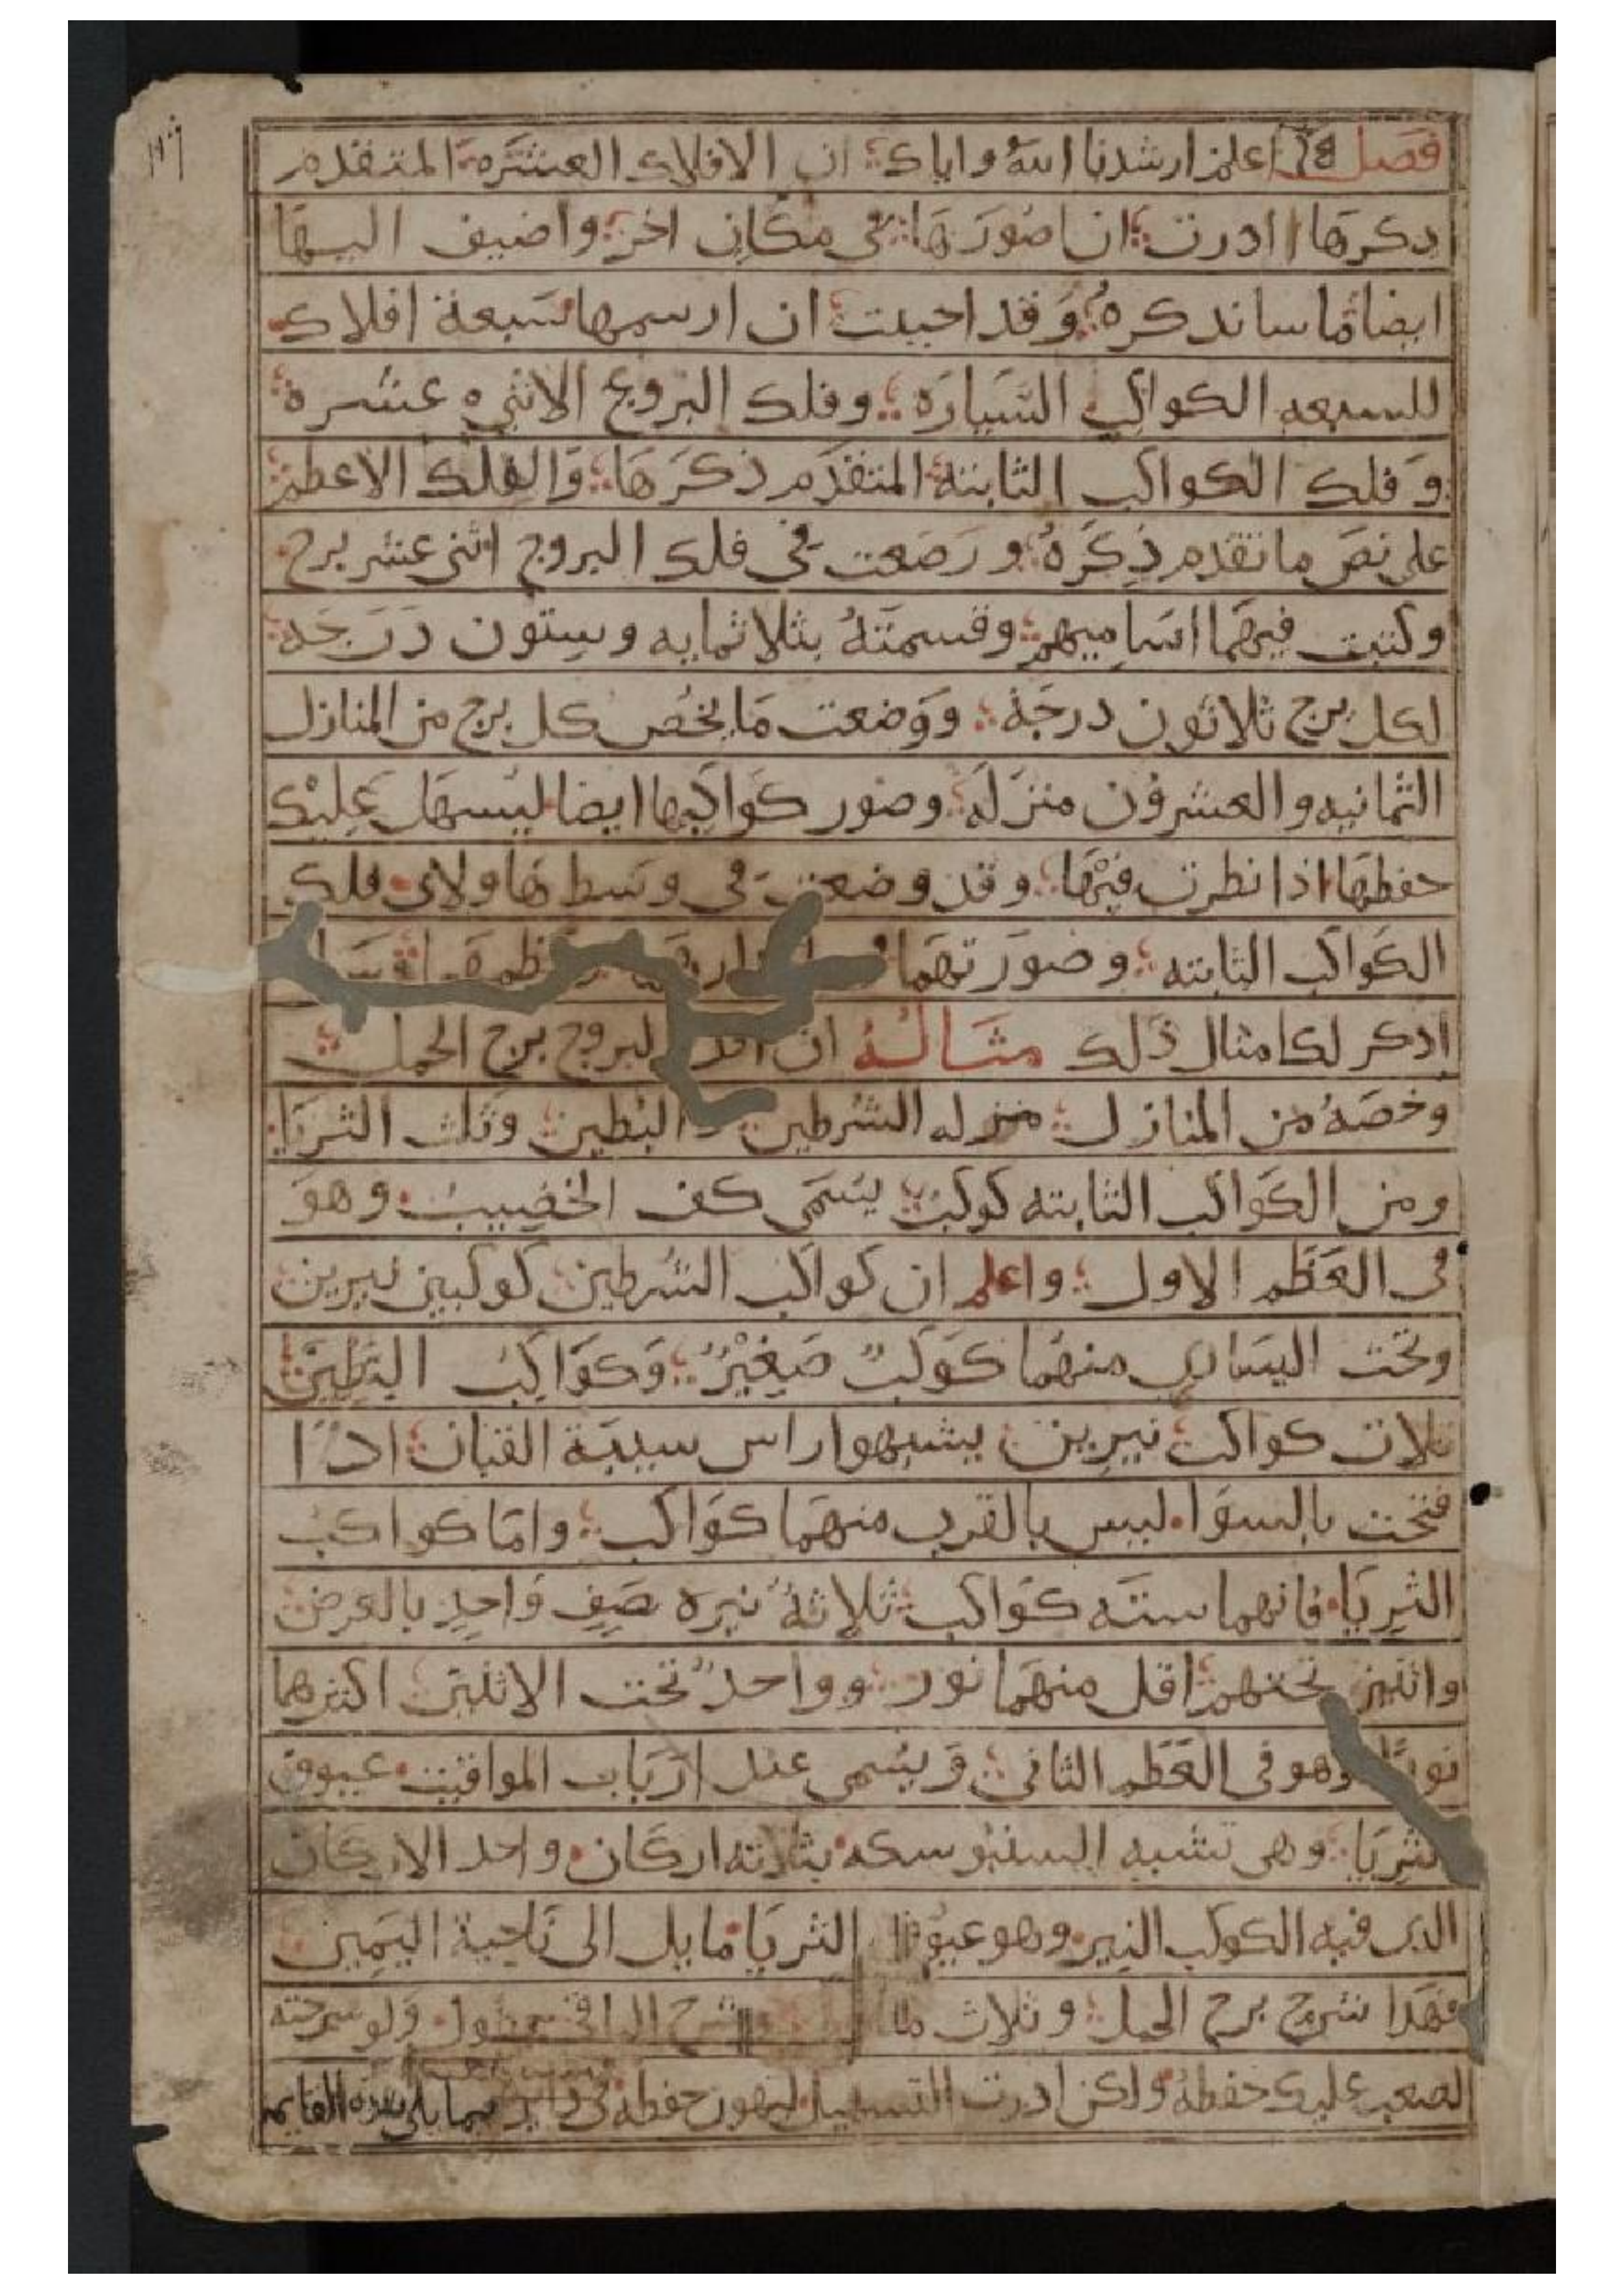 ١٢٦
فصل اعلم ارشدنا الله واياك ان الافلاك العشره المتقدم
دكرها اردت ان اصورها في مكان اخر واضيف اليها
ايضا ما ساندكره وقد احببت ان ارسمها سبعة افلاك
للسبعه الكواكب السياره وفلك البروج الاثني عشره
وفلك الكواكب الثابته المتقدم ذكرها والفلك الاعظم
على نص ما تقدم ذكره ورصعت في فلك البروج اثنى عشر برج
وكتبت فيهما اساميهم وقسمته بثلاثمايه وستون درجه
لكل برج ثلاثون درجة ووضعت ما يخص كل برج من المنازل
الثمانيه والعشرون منزله وصور كواكبها ايضا ليسهل عليك
حفظها اذا نظرت فيها وقد وضعت في وسط هاولاى فلك
الكواكب الثابته وصورتهما
ادكر لك مثال ذلك مثاله ان البروج برج الحمل
وخصه من المنازل منزله الشرطين والبطين وثلث الثريا
ومن الكواكب الثابته كوكب يسمى كف الخضيب وهو
في العظم الاول واعلم ان كواكب الشرطين كوكبين نيرين
وتحت اليسار منهما كوكب صغير وكواكب البطين
ثلاث كواكب نيرين يشبهوا راس سيبة القبان ادا
فتحت بالسوا ليس بالقرب منهما كواكب واما كواكب
الثريا فانهما سته كواكب ثلاثة نيره صف واحد بالعرض
واثنين تحتهم اقل منهما نور وواحد تحت الاثنين اكثرهما
نورا وهو في العظم الثاني ويسمى عند ارباب المواقيت عيوق
الثريا وهى تشبه السنبوسكه بثلاثه اركان واحد الاركان
الدى فيه الكوكب النير وهو عيوق الثريا مايل الى ناحية اليمين
فهدا شرح برج الحمل وثلاث شرح الباقى يطول ولو شرحته
لصعب عليك حفظه ولكن اردت التسهيل ليهون حفظه فيما يلى هده القايمه